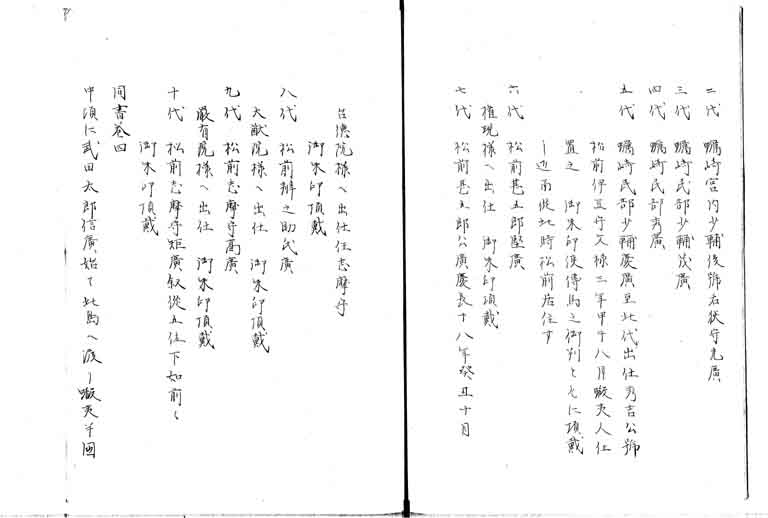 二代 蠣崎宮内少輔後號若狹守光廣
三代 蠣崎民部少輔茂廣
四代 蠣崎民部秀廣
五代 蠣崎民部少輔慶廣至此代出仕秀吉公號
松前伊豆守文禄三年甲午八月蝦夷人仕
置之 御朱印後傳馬之御判ともに頂戴
此時松前居住す
六代 松前甚五郎盛廣
權現様へ出仕 御朱印頂戴
七代 松前甚五郎公廣慶長十八年癸丑十月
台徳院様へ出仕任志摩守
御朱印頂戴
八代 松前辨之助氏廣
大猷院様へ出仕 御朱印頂戴
九代 松前志摩守高廣
嚴有院様へ出仕 御朱印頂戴
十代 松前志摩守矩廣叙從五位下如前々
御朱印頂戴
同書巻四
中頃に武田太郎信廣始て此島へ渡り蝦夷千國